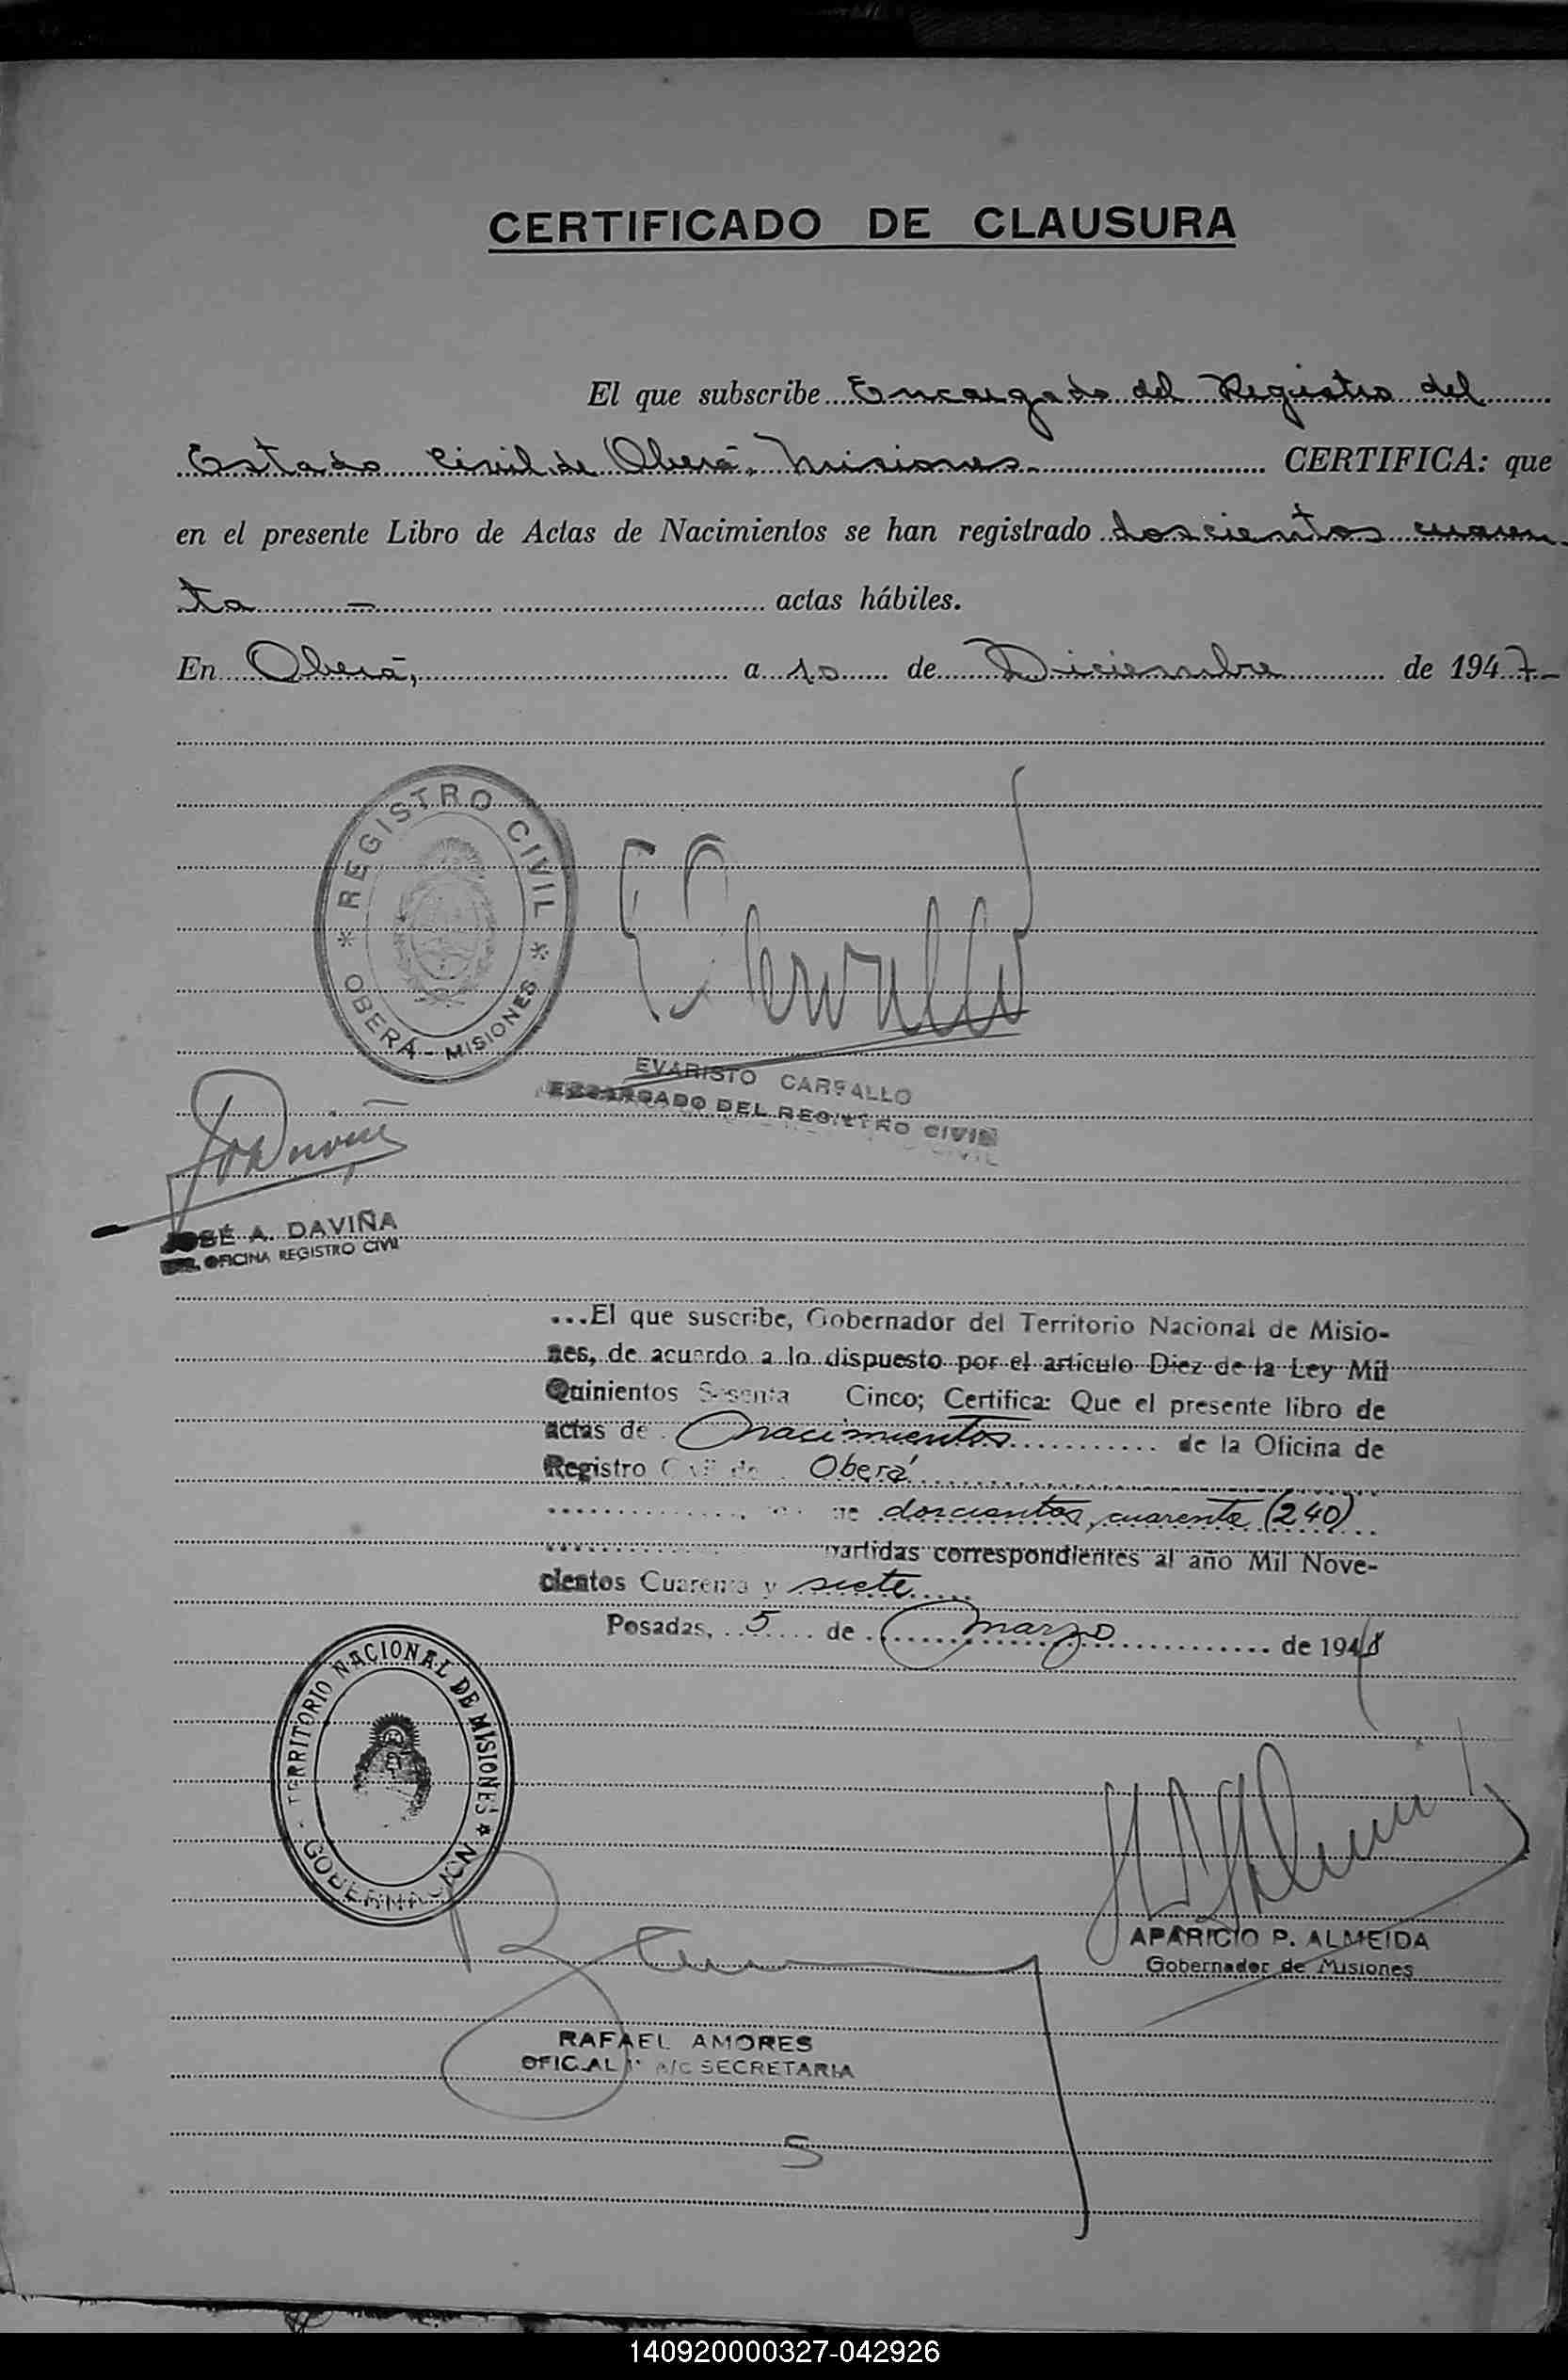 CERTIFICADO DE CLAUSURA
El que subscribe Encargado del Registro del
Estado Civil de Oberá, Misiones CERTIFICA: que
en el presente Libro de Actas de Nacimientos se han registrado doscientos cuaren-
ta - actas hábiles.
En Oberá, a 10 de Diciembre de 1947.-
* REGISTRO CIVIL *
OBERÁ - MISIONES
EVARISTO CARBALLO
ENCARGADO DEL REGISTRO CIVIL
JOSÉ A. DAVIÑA
OFICINA REGISTRO CIVIL
...El que suscribe, Gobernador del Territorio Nacional de Misio-
nes, de acuerdo a lo dispuesto por el artículo Diez de la Ley Mil
Quinientos Sesenta Cinco; Certifica: Que el presente libro de
actas de Nacimientos de la Oficina de
Registro Civil de Oberá
doscientos cuarenta (240)
partidas correspondientes al año Mil Nove-
cientos Cuarenta y siete
Posadas, 5 de marzo de 1948
TERRITORIO NACIONAL DE MISIONES *
GOBERNACIÓN
APARICIO P. ALMEIDA
Gobernador de Misiones
RAFAEL AMORES
OFICIAL 1º A/C SECRETARIA
5
140920000327-042926